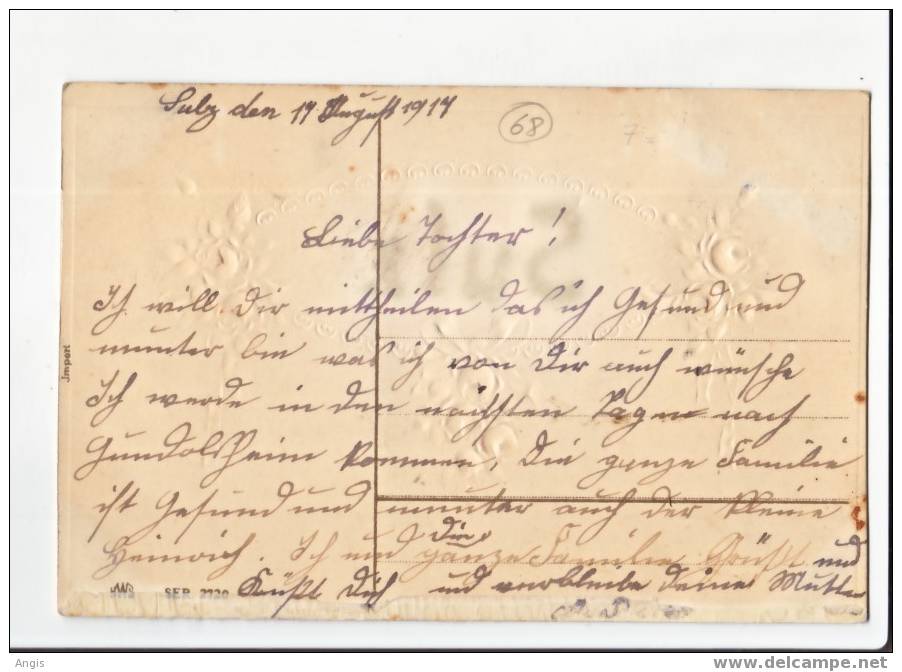 Sulz den 17 August 1917
68
Liebe Tochter!
Ich will Dir mittheilen das ich Gesund und
munter bin was ich von Dir auch wünsche
Ich werde in den nächsten Tagen nach
Gundolsheim kommen, Die ganze Familie
ist Gesund und munter auch der kleine
Heinrich. Ich und die ganze Familie Grüßt und
Küßt Dich und verbleibe Deine Mutter
Import
SER
Angis
www.delcampe.net